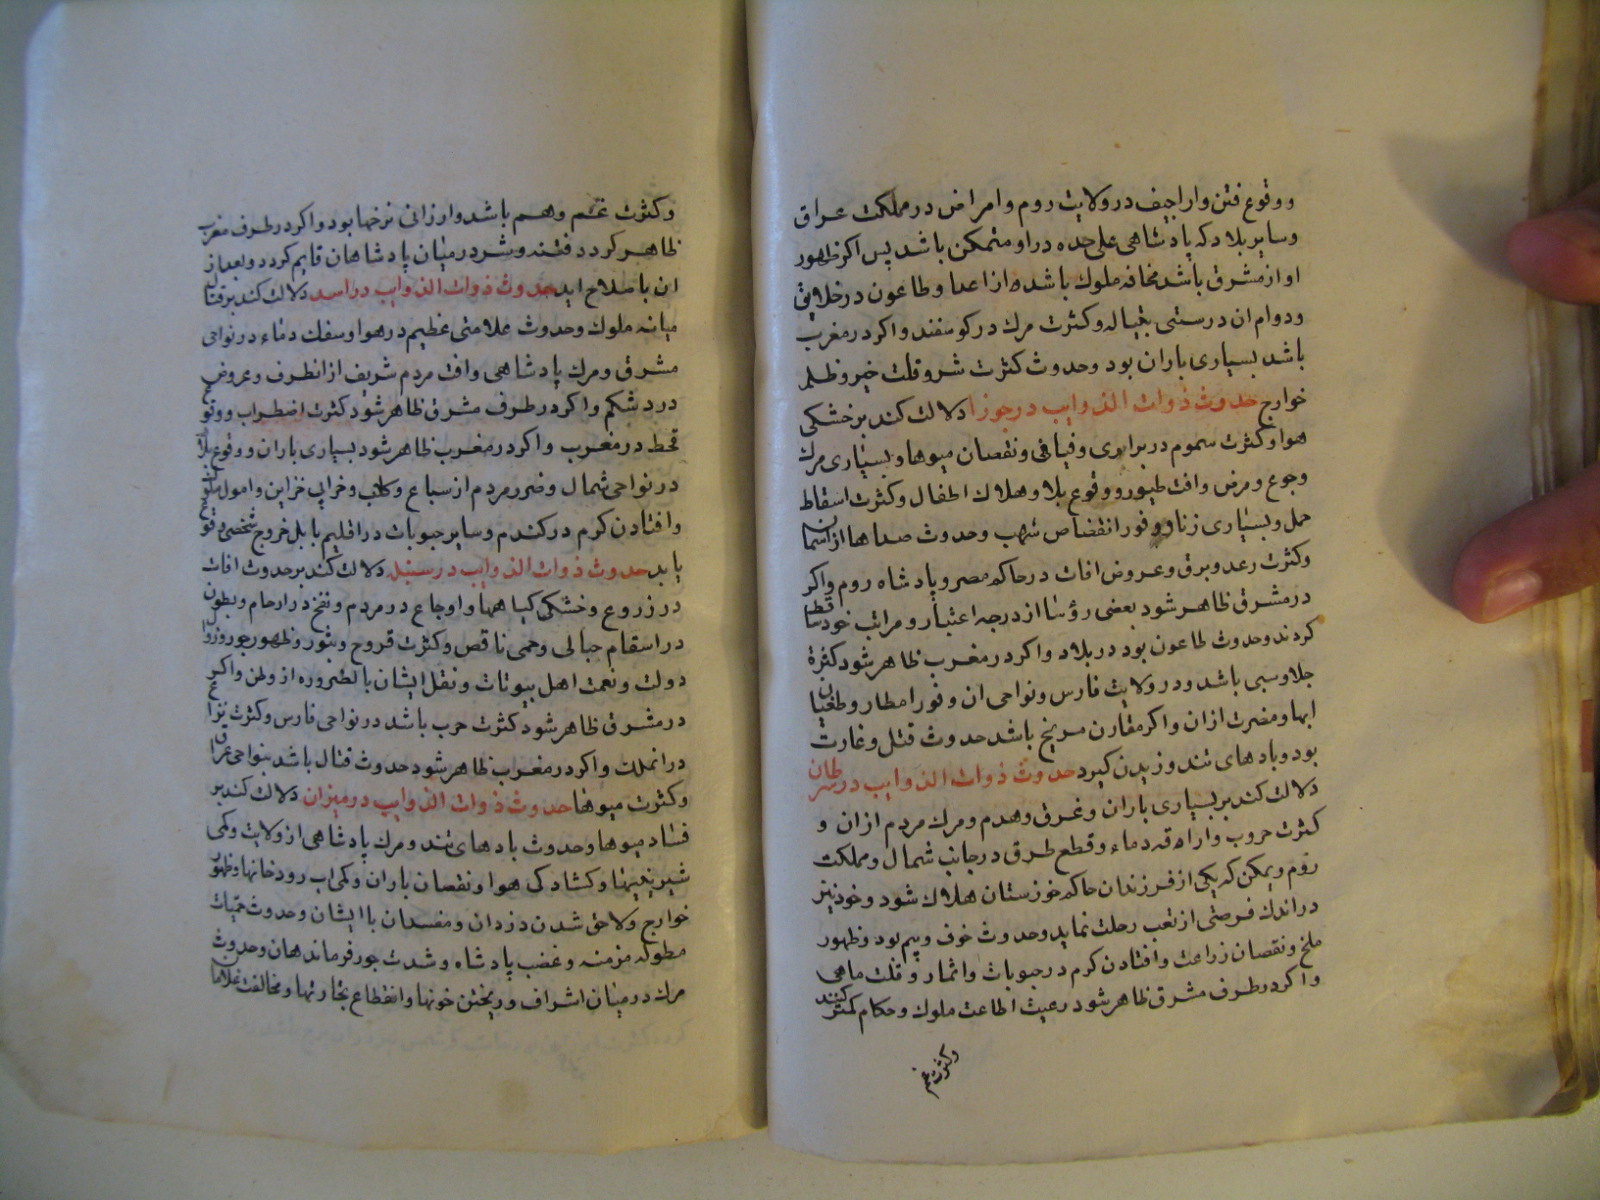 و وقوع فتن و اراجیف در ولایت روم و امراض در مملکت عراق
و سایر بلاد که پادشاهی علی حده در او متمکن باشد پس اکر ظهور
او از مشرق باشد مخافه ملوک باشد از اعدا و طاعون در خلایق
و دوام ان در ستی بثیاله و کثرت مرک در کوسفند و اکر در مغرب
باشد بسیاری باران بود و حدوث کثرت شر و قلت خیر و ظلم
خوارج حدوث ذوات الذوایب در جوزا دلالت کند بر خشکی
هوا و کثرت سموم در براری و فیافی و نقصان میوها و بسیاری مرک
و جوع و مرض و افت طیور و وقوع بلا و هلاک اطفال و کثرت اسقاط
حمل و بسیاری زنا و وفور انقضاض شهب و حدوث صداها از اسمان
و کثرت رعد و برق و عروض افات در حاکم مصر و پادشاه روم و اکر
در مشرق ظاهر شود بعضی رؤسا از درجه اعتبار و مراتب خود ساقط
کردند و حدوث طاعون بود در بلاد و اکر در مغرب ظاهر شود کثرة
جلا و سبی باشد و در ولایت فارس و نواحی ان و فور امطار و طغیان
ابها و مضرت از ان و اکر مقارن مریخ باشد حدوث قتل و غارت
بود و بادهای تند وزیدن کیرد حدوث ذوات الذوایب در سرطان
دلالت کند بر بسیاری باران و غرق و هدم و مرک مردم از ان و
کثرت حروب و اراقه دماء و قطع طرق در جانب شمال و مملکت
روم و یمکن که یکی از فرزندان حاکم خوزستان هلاک شود و خود نیز
در اندک فرصتی از تعب رحلت نماید و حدوث خوف و بیم بود و ظهور
ملخ و نقصان زراعت و افتادن کرم در حبوبات و اثمار و قلت ماهی
و اکر در طرف مشرق ظاهر شود رعیت اطاعت ملوک و حکام کمتر کنند
و کثرت غم
و کثرت غم و هم باشد و ارزانی نرخها بود و اکر در طرف مغرب
ظاهر کردد فتنه و شر در میان پادشاهان قایم کردد و بعد از
ان باصلاح اید حدوث ذوات الذوایب در اسد دلالت کند بر قتال
میانه ملوک و حدوث علامتی عظیم در هوا و سفک دماء در نواحی
مشرق و مرک پادشاهی و افت مردم شریف از انطرف و عروض
درد شکم و اکر در طرف مشرق ظاهر شود کثرت اضطراب و وقوع
قحط در مغرب و اکر در مغرب ظاهر شود بسیاری باران و وقوع بلا
در نواحی شمال و ضرر مردم از سباع و کلاب و خرابی خزاین و امول ملوک
و افتادن کرم در کندم و سایر حبوبات در اقلیم بابل خروج شخصی وقوع
یابد حدوث ذوات الذوایب در سنبله دلالت کند بر حدوث افات
در زروع و خشکی کیاهها و اوجاع در مردم و نفخ در ارحام و بطون
در اسقام حبالی و حمی ناقص و کثرت قروح و بثور و ظهور جور وزرا
دولت و نعمت اهل بیوتات و نقل ایشان بالضروره از وطن و اکر
در مشرق ظاهر شود کثرت حرب باشد در نواحی فارس و کثرت نزاع
در انملک و اکر در مغرب ظاهر شود حدوث قتال باشد بنواحی عراق
و کثرت میوها حدوث ذوات الذوایب در میزان دلالت کند بر
فساد میوها و حدوث بادهای تند و مرک پادشاهی از ولایت و کمی
شیرینیها و کشادکی هوا و نقصان باران و کمی اب رودخانها و ظهور
خوارج و لاحق شدن دزدان و مفسدان با ایشان و حدوث حمیات
مطوله مزمنه و غضب پادشاه و شدت جور فرماندهان و حدوث
مرک در میان اشراف و ریختن خونها و انقطاع تجارتها و مخالفت غلامان